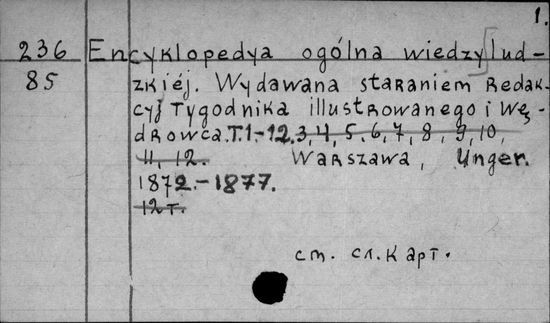 1.
236 Encyklopedya ogólna wiedzy lud-
85 zkiéj. Wydawana staraniem Redak-
cyj Tygodnika illustrowanego i Wę-
drowca. T. 1.-12. 3, 4, 5. 6, 7, 8, 9, 10,
11, 12. Warszawa, Unger.
1872.-1877.
12 т.
ст. сл. карт.